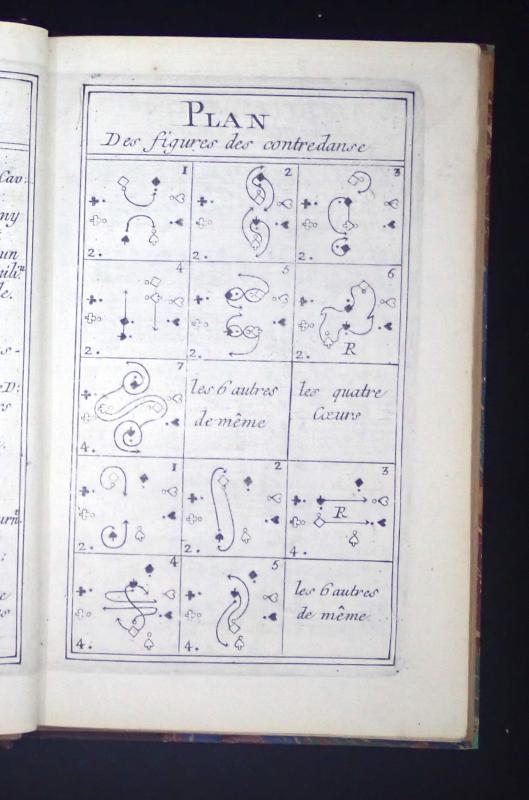 PLAN
Des figures des contredanse
1
2
3
2.
2.
2.
4
5
6
2.
2.
2.
R
7
4.
les 6 autres
de même
les quatre
Cœurs
1
2
3
2.
2.
4.
R
4
5
4.
4.
les 6 autres
de même
Cav:
ny
un
de.
s-
eD:
rs
e
s